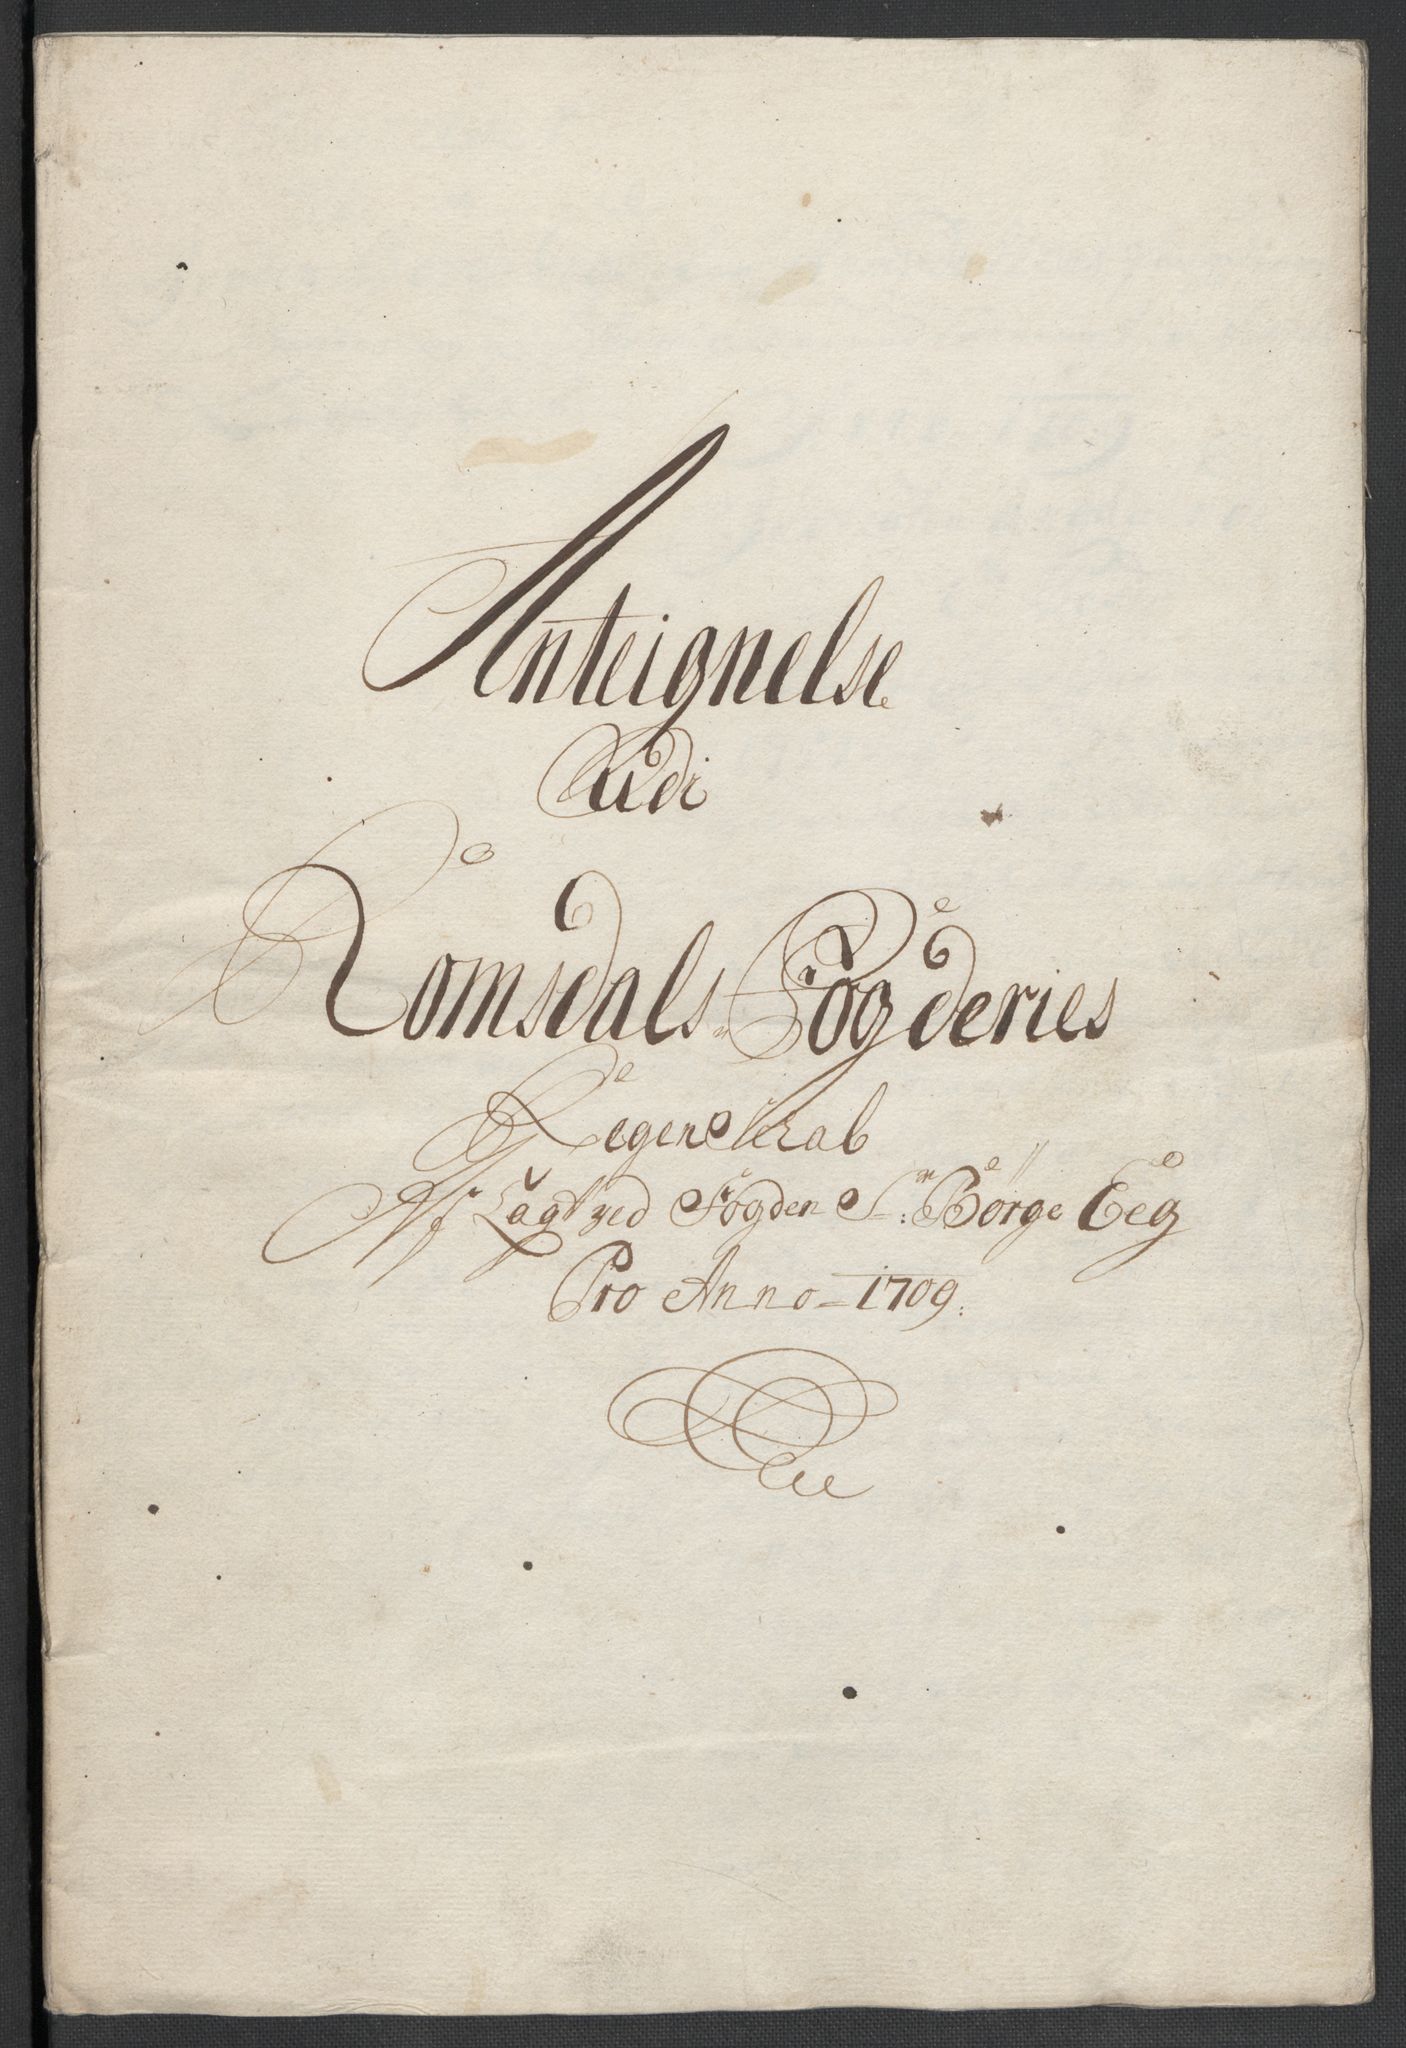 Anteignelse
Udi
Romsdals Fögderies
Regenskab
Aflagt ved Fogden Sr: Börge Eeg
Pro Anno 1709.